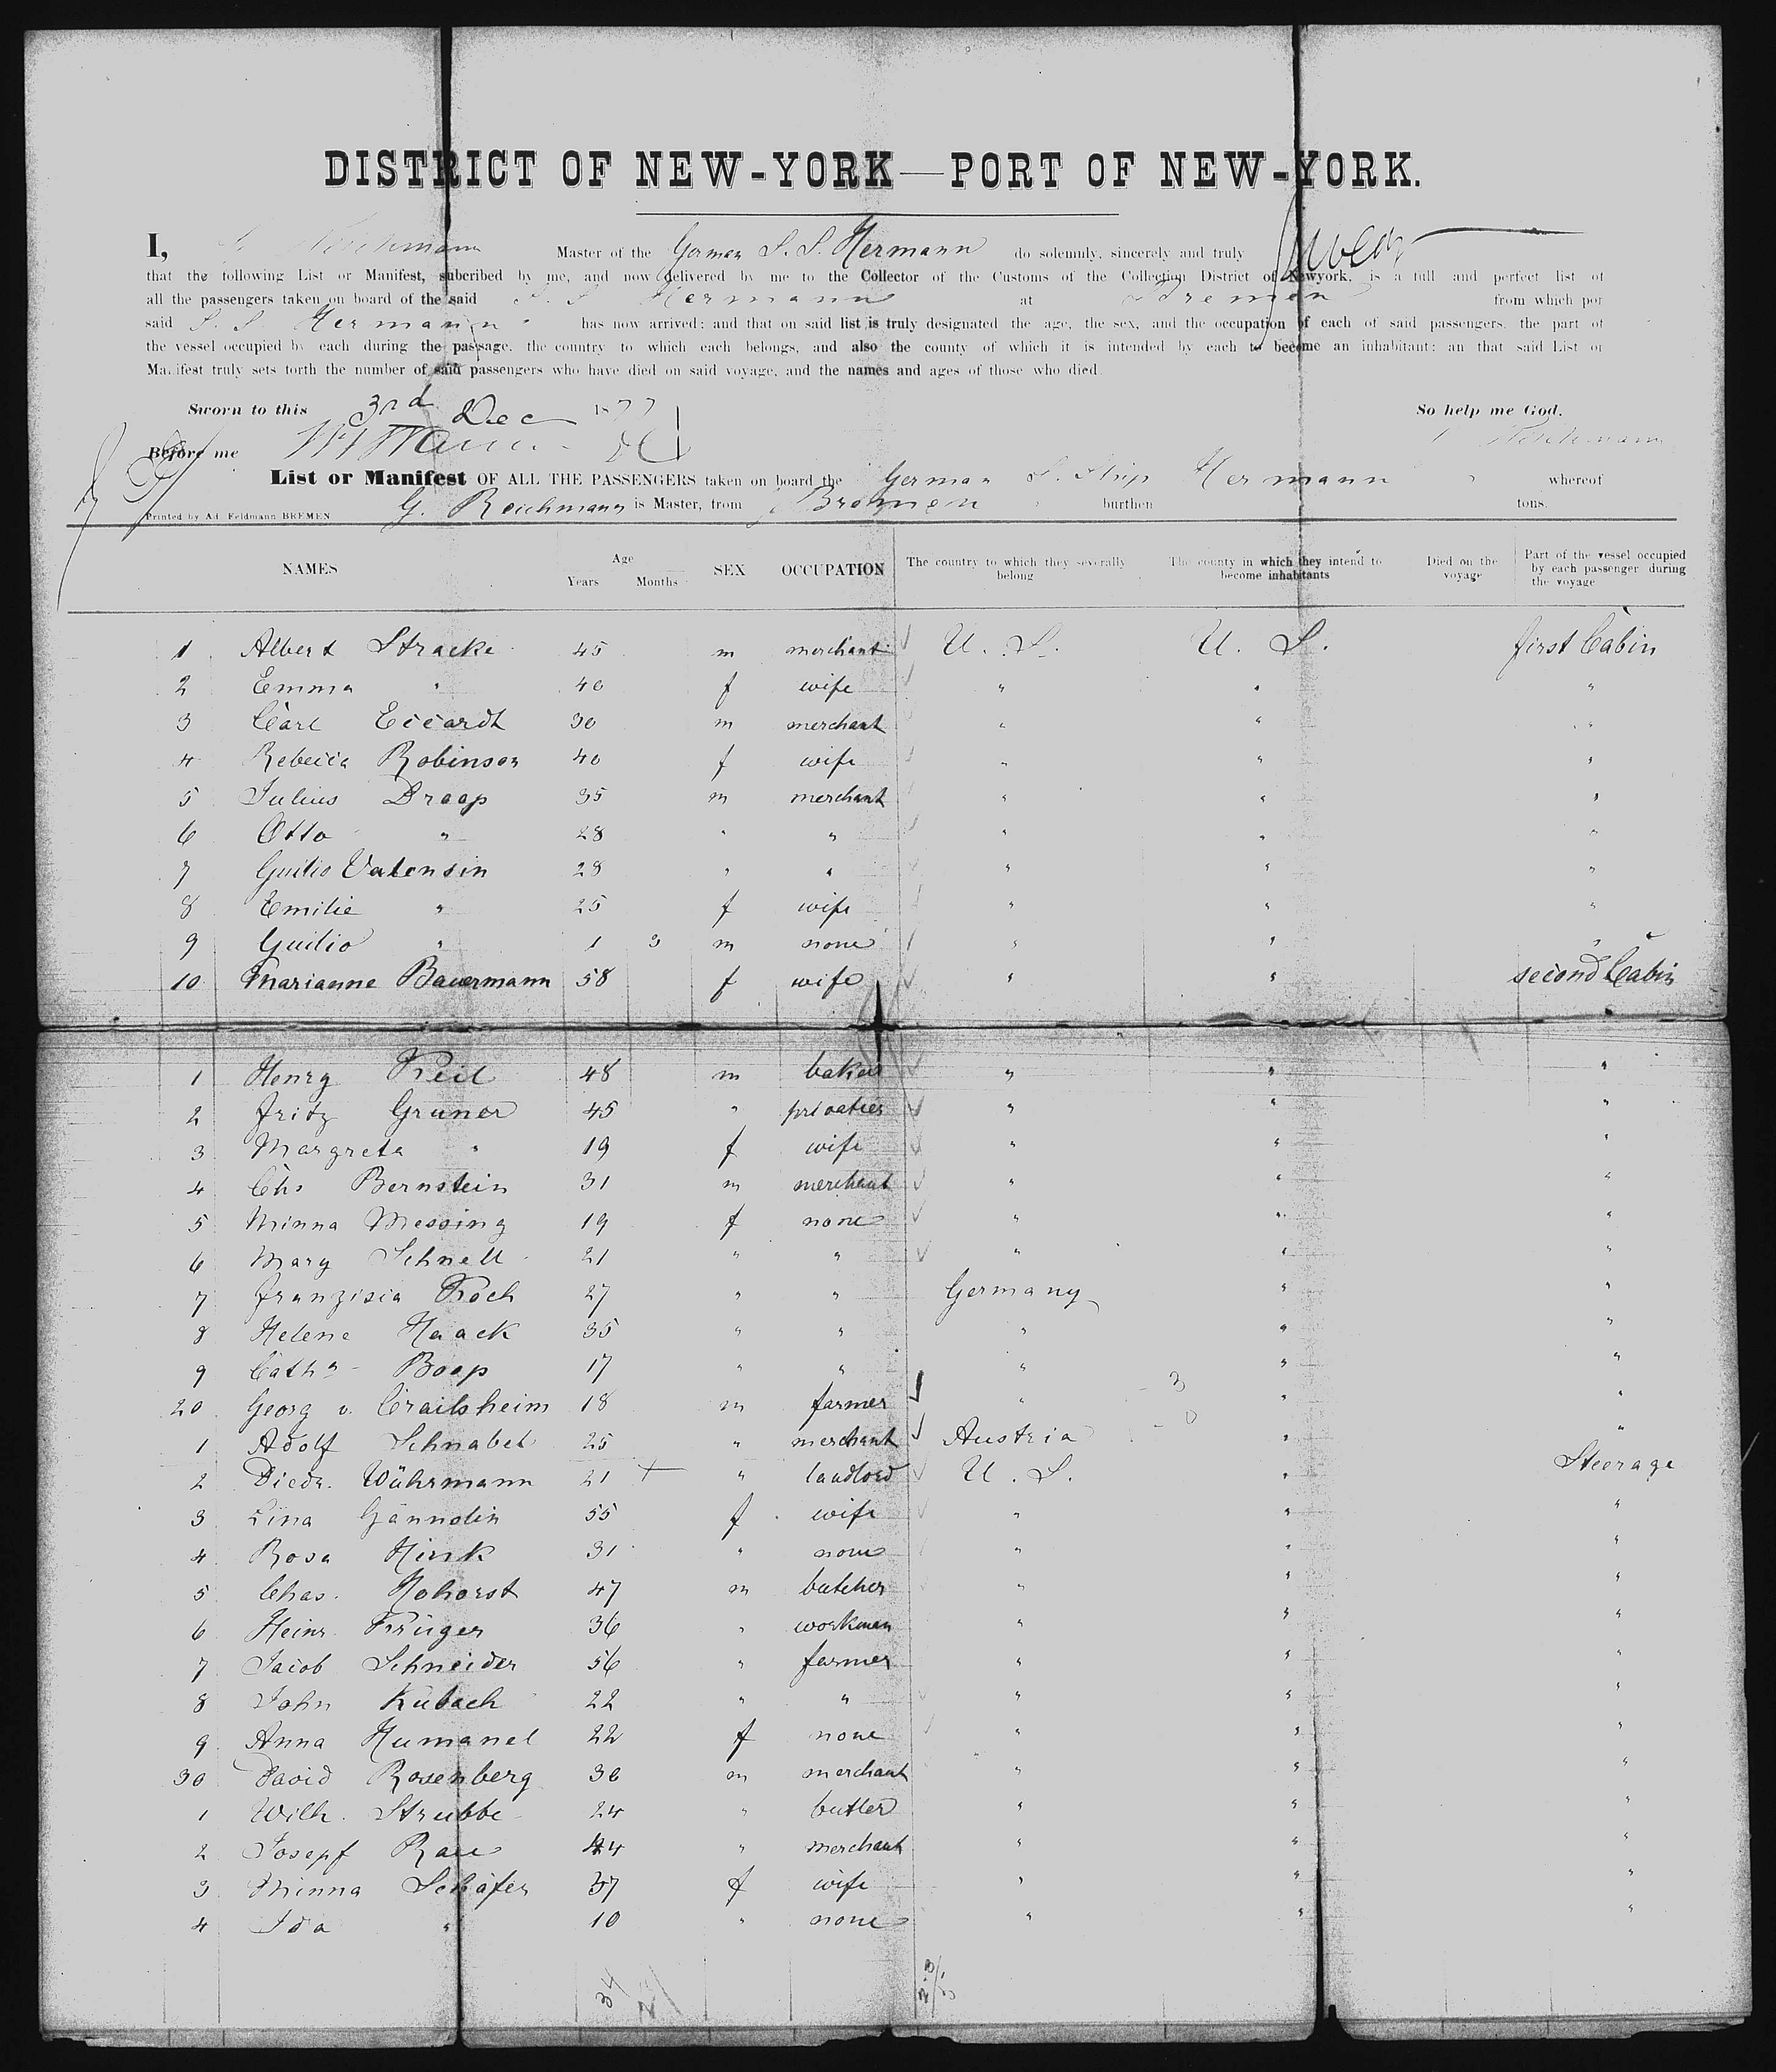 DISTRICT OF NEW-YORK—PORT OF NEW-YORK.
I, G. Reichmann Master of the German S. S. Hermann do solemnly, sincerely and truly swear
that the following List or Manifest, subcribed by me, and now delivered by me to the Collector of the Customs of the Collection District of Newyork, is a full and perfect list of
all the passengers taken on board of the said S. S. Hermann at Bremen from which por
said S. S. Hermann has now arrived; and that on said list is truly designated the age, the sex, and the occupation of each of said passengers, the part of
the vessel occupied by each during the passage, the country to which each belongs, and also the county of which it is intended by each to become an inhabitant: an that said List or
Manifest truly sets forth the number of said passengers who have died on said voyage, and the names and ages of those who died.
Sworn to this 3rd Dec 1877 So help me God.
Before me G. Reichmann
List or Manifest OF ALL THE PASSENGERS taken on board the German S. Ship Hermann whereof
G. Reichmann is Master, from Bremen burthen tons.
Printed by Ad. Feldmann BREMEN
NAMES Age Years Months SEX OCCUPATION The country to which they severally belong The county in which they intend to become inhabitants Died on the voyage Part of the vessel occupied by each passenger during the voyage
1 Albert Stracke 45 m merchant U. S. U. S. first Cabin
2 Emma " 40 f wife " " "
3 Carl Eccardt 30 m merchant " " "
4 Rebecca Robinson 40 f wife " " "
5 Julius Draop 35 m merchant " " "
6 Otto " 28 " " " " "
7 Guilio Valensin 28 " " " " "
8 Emilie " 25 f wife " " "
9 Guilio " 1 3 m none " " "
10 Marianne Bauermann 58 f wife " " second Cabin
1 Henry Keil 48 m baker " " "
2 Fritz Gruner 45 " privatier " " "
3 Margreta " 19 f wife " " "
4 Chs Bernstein 31 m merchant " " "
5 Minna Messing 19 f none " " "
6 Mary Schnell 21 " " " " "
7 Franzisca Koch 27 " " Germany " "
8 Helene Haack 35 " " " " "
9 Cath. Boop 17 " " " " "
20 Georg v. Crailsheim 18 m farmer " " "
1 Adolf Schnabel 25 " merchant Austria " "
2 Diedr. Wührmann 21 " landlord U. S. " Steerage
3 Lina Gänndin 55 f wife " " "
4 Rosa Hink 31 " none " " "
5 Chas. Nohorst 47 m butcher " " "
6 Heinr. Krüger 36 " workmen " " "
7 Jacob Schneider 56 " farmer " " "
8 John Kubach 22 " " " " "
9 Anna Humanel 22 f none " " "
30 David Rosenberg 30 m merchant " " "
1 Wilh. Strubbe 24 " butler " " "
2 Josepf Rau 44 " merchant " " "
3 Minna Schäfer 37 f wife " " "
4 Ida " 10 " none " " "
34